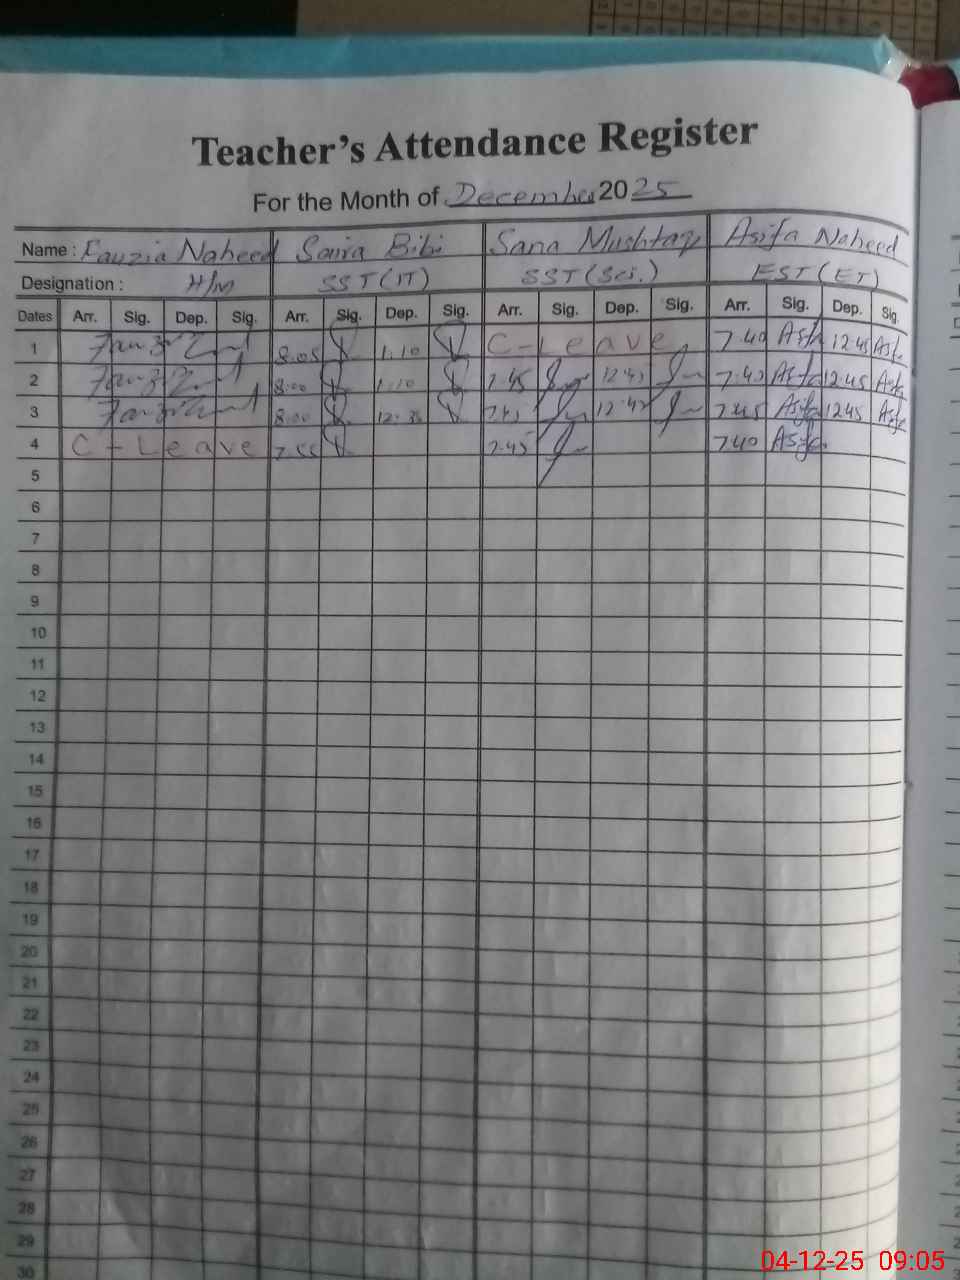 Teacher's Attendance Register
For the Month of December 2025
Name : Fauzia Naheed Saira Bibi Sana Mushtaq Asifa Naheed
Designation : H/M SST(IT) SST(Sci.) EST(ET)
Dates Arr. Sig. Dep. Sig. Arr. Sig. Dep. Sig. Arr. Sig. Dep. Sig. Arr. Sig. Dep. Sig.
1 8:05 1:10 C-Leave 7:40 Asifa 12:45 Asifa
2 8:00 1:10 7:45 12:45 7:40 Asifa 12:45 Asifa
3 8:00 12:35 7:45 12:45 7:45 Asifa 12:45 Asifa
4 C-Leave 7:55 7:45 7:40 Asifa
5
6
7
8
9
10
11
12
13
14
15
16
17
18
19
20
21
22
23
24
25
26
27
28
29
30
04-12-25 09:05